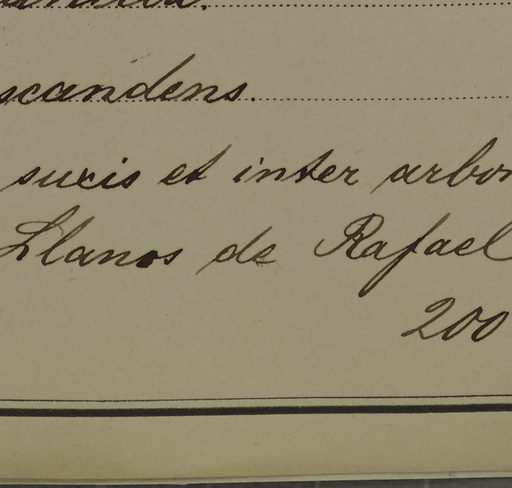 scandens.
sucis et inter arbor
Llanos de Rafael
200